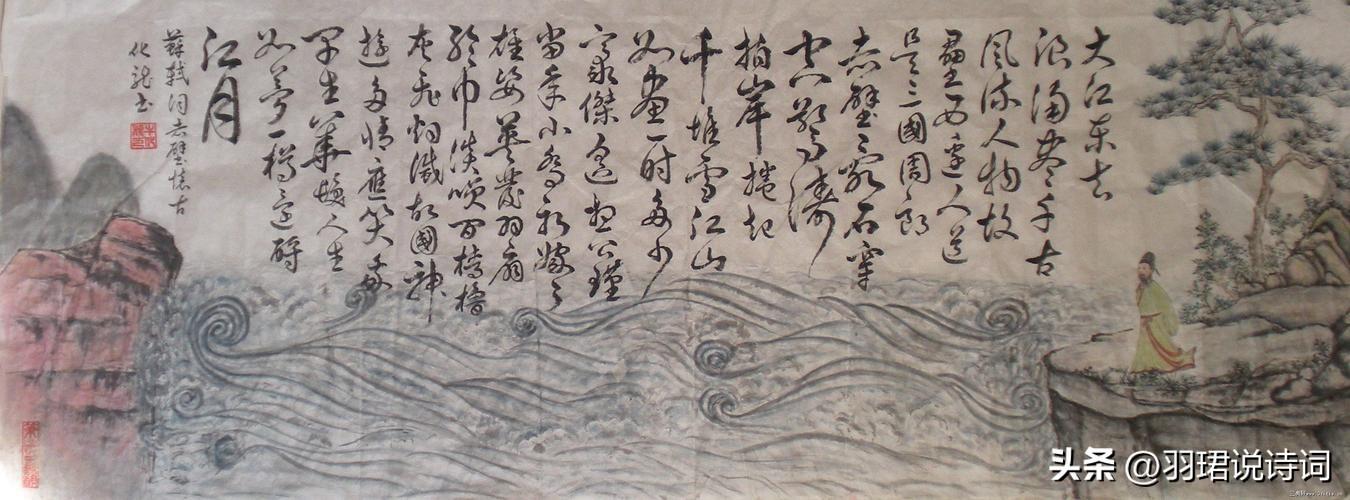 大江东去
浪淘尽千古
风流人物故
壘西边人道
是三國周郎
赤壁乱石穿
空驚涛
拍岸捲起
千堆雪江山
如画一时多少
豪傑遥想公瑾
当年小乔初嫁了
雄姿英发羽扇
纶巾谈笑间樯橹
灰飞烟滅故國神
遊多情應笑我
早生華髮人生
如梦一樽还酹
江月
蘇軾词赤壁懷古
化龙书
头条 @羽珺说诗词